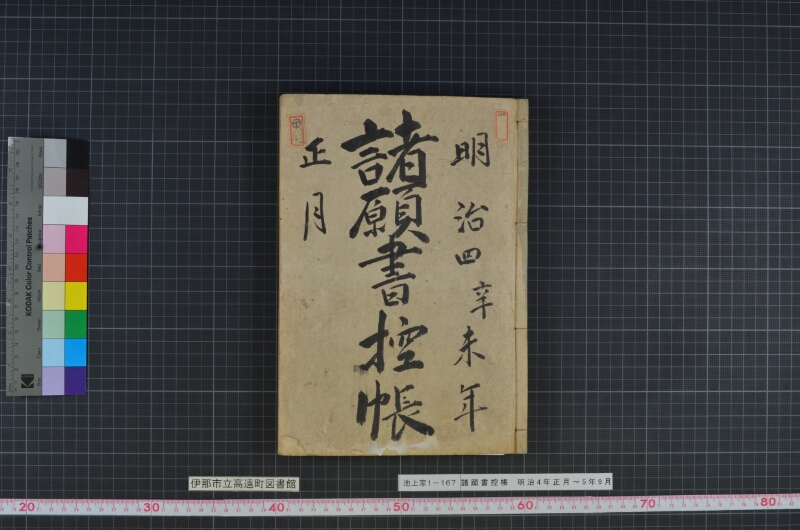 明治四辛未年
諸願書控帳
正月
KODAK Color Control Patches
伊那市立高遠町図書館
池上家1-167 諸願書控帳 明治4年正月~5年9月
20 30 40 50 60 70 80